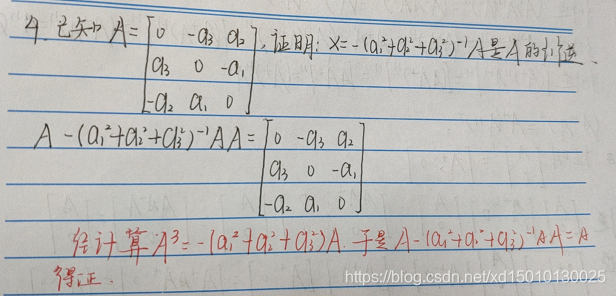 4. 已知 A = [0 -a3 a2, 证明: X = -(a1²+a2²+a3²)⁻¹A是A的{1}逆.
a3 0 -a1
-a2 a1 0]
A -(a1²+a2²+a3²)⁻¹AA = [0 -a3 a2
a3 0 -a1
-a2 a1 0]
经计算 A³ = -(a1²+a2²+a3²)A. 于是 A -(a1²+a2²+a3²)⁻¹AA = A
得证.
https://blog.csdn.net/xd15010130025